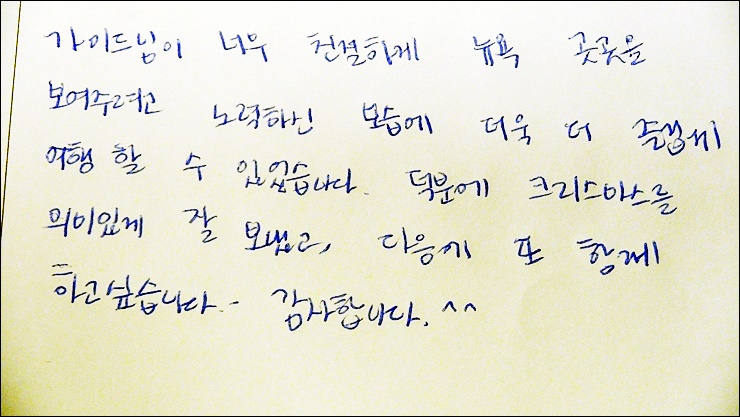 가이드님이 너무 친절하게 뉴욕 곳곳을
보여주려고 노력하신 모습에 더욱 더 즐겁게
여행 할 수 있었습니다. 덕분에 크리스마스를
의미있게 잘 보냈고, 다음에 또 함께
하고싶습니다.- 감사합니다. ^^